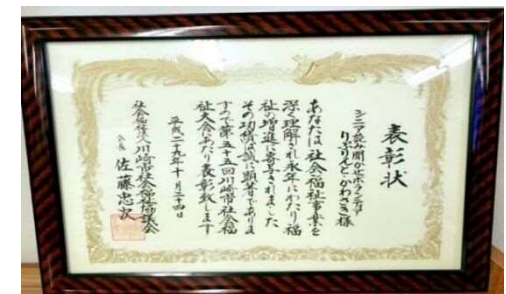 表彰状
シニア読み聞かせボランティア
りぷりんとかわさき様
あなたは社会福祉事業を
深く理解され永年にわたり福
祉の増進に寄与されました
その功績は誠に顕著であります
すので第五十五回川崎市社会福
祉大会にあたり表彰致します
平成二十九年十月二十四日
社会福祉法人川崎市社会福祉協議会
会長 佐藤忠次